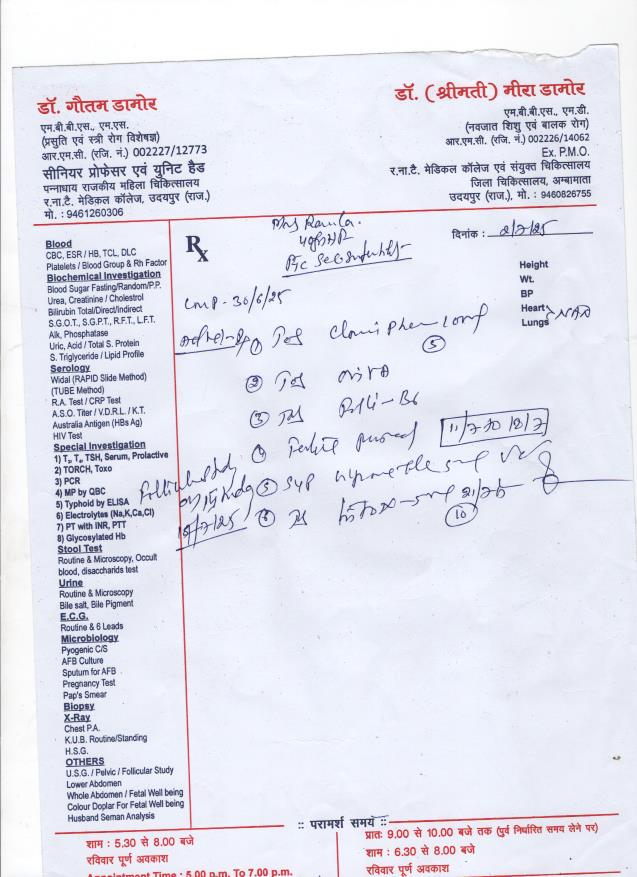 डॉ. गौतम डामोर
एम.बी.बी.एस., एम.एस.
(प्रसुति एवं स्त्री रोग विशेषज्ञ)
आर.एम.सी. (रजि. नं.) 002227/12773
सीनियर प्रोफेसर एवं युनिट हैड
पन्नाधाय राजकीय महिला चिकित्सालय
र.ना.टै. मेडिकल कॉलेज, उदयपुर (राज.)
मो. : 9461260306
डॉ. (श्रीमती) मीरा डामोर
एम.बी.बी.एस., एम.डी.
(नवजात शिशु एवं बालक रोग)
आर.एम.सी. (रजि. नं.) 002226/14062
Ex. P.M.O.
र.ना.टा. मेडिकल कॉलेज एवं संयुक्त चिकित्सालय
जिला चिकित्सालय, अम्बामाता
उदयपुर (राज.), मो. : 9460826755
Rx
दिनांक : 2/7/25
Height
Wt.
BP
Heart
Lungs NAD
LMP - 30/6/25
① Tab
⑤
② Tab
③ Tab
④
11/7 20 12/7
⑤ Syp
15/7/25
⑥
⑩
Blood
CBC, ESR / HB, TCL, DLC
Platelets / Blood Group & Rh Factor
Biochemical Investigation
Blood Sugar Fasting/Random/P.P.
Urea, Creatinine / Cholestrol
Bilirubin Total/Direct/Indirect
S.G.O.T., S.G.P.T., R.F.T., L.F.T.
Alk, Phosphatase
Uric, Acid / Total S. Protein
S. Triglyceride / Lipid Profile
Serology
Widal (RAPID Slide Method)
(TUBE Method)
R.A. Test / CRP Test
A.S.O. Titer / V.D.R.L. / K.T.
Australia Antigen (HBs Ag)
HIV Test
Special Investigation
1) T₃, T₄, TSH, Serum, Prolactive
2) TORCH, Toxo
3) PCR
4) MP by QBC
5) Typhoid by ELISA
6) Electrolytes (Na,K,Ca,Cl)
7) PT with INR, PTT
8) Glycosylated Hb
Stool Test
Routine & Microscopy, Occult
blood, disaccharids test
Urine
Routine & Microscopy
Bile salt, Bile Pigment
E.C.G.
Routine & 6 Leads
Microbiology
Pyogenic C/S
AFB Culture
Sputum for AFB
Pregnancy Test
Pap's Smear
Biopsy
X-Ray
Chest P.A.
K.U.B. Routine/Standing
H.S.G.
OTHERS
U.S.G. / Pelvic / Follicular Study
Lower Abdomen
Whole Abdomen / Fetal Well being
Colour Doplar For Fetal Well being
Husband Seman Analysis
:: परामर्श समय ::
शाम : 5.30 से 8.00 बजे
रविवार पूर्ण अवकाश
Appointment Time : 5.00 p.m. To 7.00 p.m.
प्रातः 9.00 से 10.00 बजे तक (पुर्व निर्धारित समय लेने पर)
शाम : 6.30 से 8.00 बजे
रविवार पूर्ण अवकाश